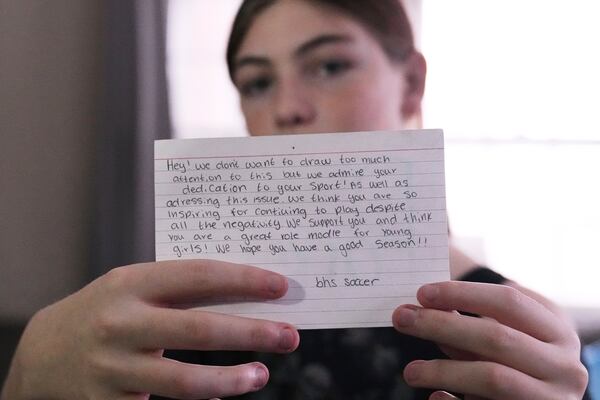 Hey! we don't want to draw too much
attention to this but we admire your
dedication to your sport! As well as
adressing this issue. We think you are so
inspiring for continuing to play despite
all the negativity. We support you and think
you are a great role modle for young
girls! We hope you have a good season!!
bhs soccer